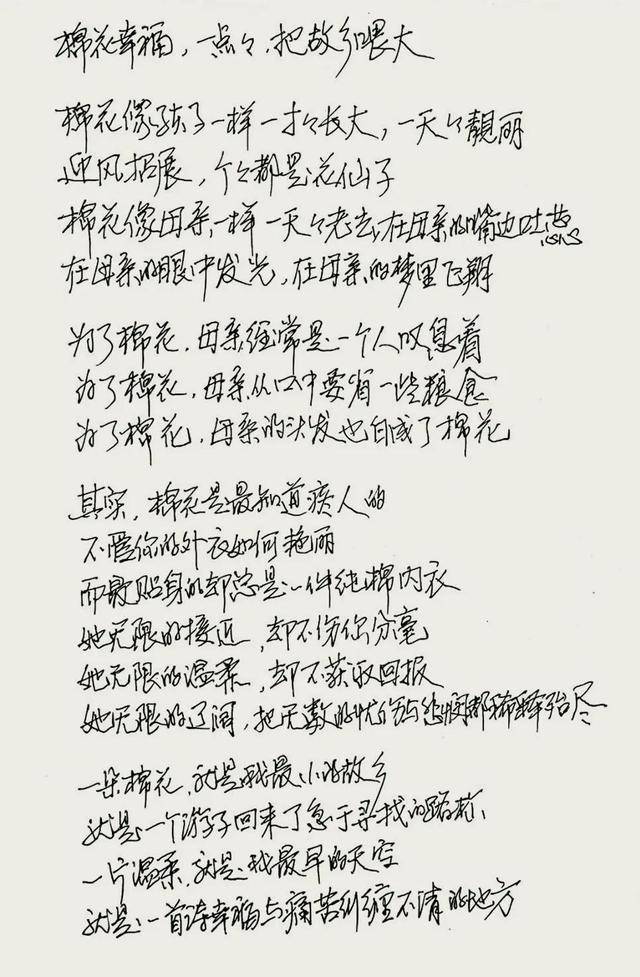 棉花幸福,一点々,把故乡喂大
棉花像孩子一样一寸々长大,一天々靓丽
迎风招展,个々都是花仙子
棉花像母亲一样一天々老去,在母亲的嘴边吐芳
在母亲的眼中发光,在母亲的梦里飞翔
为了棉花,母亲经常是一个人叹息着
为了棉花,母亲从口中要省一些粮食
为了棉花,母亲的头发也白成了棉花
其实,棉花是最知道疼人的
不管你的外衣如何艳丽
而最贴身的却总是一件纯棉内衣
她无限的接近,却不伤你分毫
她无限的温柔,却不获取回报
她无限的辽阔,把无数的忧伤与悲悯都稀释殆尽
一朵棉花,就是我最小的故乡
就是一个游子回来了急于寻找的路标
一片温柔,就是我最早的天空
就是一首诗幸福与痛苦纠缠不清的地方